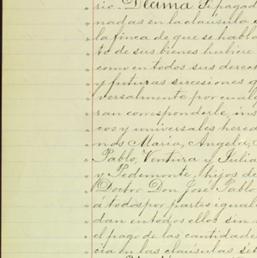 rio. Décima Si pagad
nadas en la cláusula s
la finca de que se habla
to de sus bienes hubiere
como en todos sus derec
y futuras sucesiones q
versalmente por cualq
ran corresponderle, ins
cos y universales hered
nos María, Angela, 
Pablo, Ventura y Julia
y Pedemonte, hijos de
Doctor Don José Pablo
á todos por partes igual
dan entre todos ellos sin
el pago de las cantidade
cia en las cláusulas set